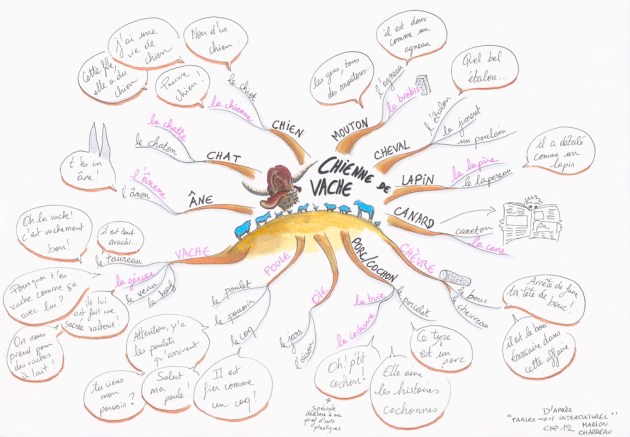 CHIENNE DE
VACHE
CHIEN
la chienne
le chiot
Nom d'un
chien
j'ai une
vie de
chien
Cette fille,
elle a du
chien
Pauvre
chien!
CHAT
la chatte
le chaton
ÂNE
l'ânesse
l'ânon
t'es un
âne!
VACHE
le taureau
la génisse
le veau
Oh la vache!
c'est vachement
bon!
il est tout
avachi...
Pourquoi t'es
vache comme ça
avec lui?
ils lui
ont fait une
sacrée vacherie!
On nous
prend pour des
vaches
à lait!
POULE
le poulet
le poussin
le coq
Attention, y'a
les poulets
qu'arrivent
tu viens
mon
poussin?
Salut
ma poule!
Il est
fier comme
un coq!
OIE
le jars
l'oison
PORC/COCHON
la truie
la cochonne
le porcelet
Oh! p'tit
cochon!
Elle aime
les histoires
cochonnes
Ce type
est un
porc
CHÈVRE
le bouc
le chevreau
Arrête de faire
ta tête de bouc!
il est le bouc
émissaire dans
cette affaire
CANARD
caneton
la cane
LAPIN
la lapine
le lapereau
il a détalé
comme un
lapin
CHEVAL
l'étalon
la jument
un poulain
Quel bel
étalon...
MOUTON
l'agneau
la brebis
les gens, tous
des moutons...
il est doux
comme un
agneau
D'APRÈS
"PARLEZ-VOUS INTERCULTUREL"
CHAP 12
MARION
CHARREAU